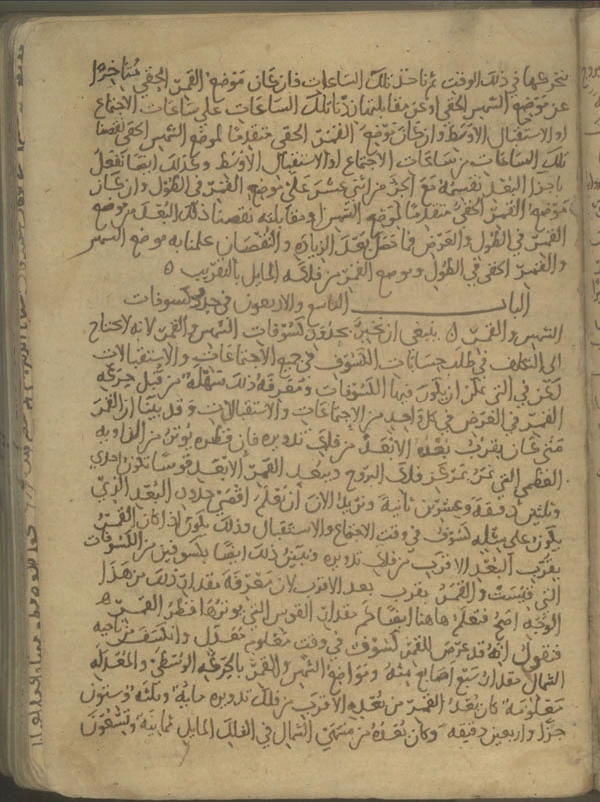 نخرجها في ذلك الوقت ثم ناخذ تلك الساعات فان كان موضع القمر الخفي متاخرا
عن موضع الشمس الخفي او عن مقابلتها زدنا تلك الساعات على ساعات الاجتماع
او الاستقبال الاوسط وان كان موضع القمر الخفي متقدما لموضع الشمس الخفي نقصنا
تلك الساعات من ساعات الاجتماع او الاستقبال الاوسط وكذلك ايضا نفعل
باجزا البعد نقسمه مع الجزء من اثني عشر على موضع القمر في الطول وان كان
موضع القمر الخفي متقدما لموضع الشمس او مقابلته نقصنا ذلك البعد من موضع
القمر في الطول والعرض فما حصل بعد الزيادة والنقصان علمنا به موضع الشمس
والقمر الخفي في الطول وموضع القمر من فلكه المايل بالتقريب
الباب التاسع والاربعون في حدود كسوفات
الشمس والقمر ينبغي ان نخبر بحدود كسوفات الشمس والقمر لانه لا يحتاج
الى التكلف في طلب حسابات الكسوف في جميع الاجتماعات والاستقبالات
لكن في التي يمكن ان يكون فيها الكسوفات ومعرفة ذلك سهلة من قبل حركة
القمر في العرض في كل واحد من الاجتماعات والاستقبالات وقد بينا ان القمر
متى كان بقرب بعده الابعد من فلك تدويره فان قطره يوتر من الزاوية
العظمى التي تمر بمركز فلك البروج وببعد القمر الابعد قوسا تكون احدى
وثلثين دقيقة وعشرين ثانية ونريد الان ان نعلم اقصى حدود البعد الذي
يكون على مثله كسوف في وقت الاجتماع والاستقبال وذلك يكون اذا كان القمر
بقرب البعد الاقرب من فلك تدويره ونبين ذلك ايضا بكسوفين من الكسوفات
التي قيست والقمر بقرب بعد الاقرب لان معرفة مقدار ذلك من هذا
الوجه اصح فنعلم هاهنا ايضا كم مقدار القوس التي يوترها قطر القمر
فنقول انه قد عرض للقمر كسوف في وقت معلوم معدل وانكسف من ناحية
الشمال مقدار سبع اصابع منه ومواضع الشمس والقمر بالحركة الوسطى والمعدلة
معلومة كان بعد القمر من بعده الاقرب من فلك تدويره مايه وثلثة وستون
جزا واربعين دقيقة وكان بعده من منتهى الشمال في الفلك المايل ثمانية وتسعون